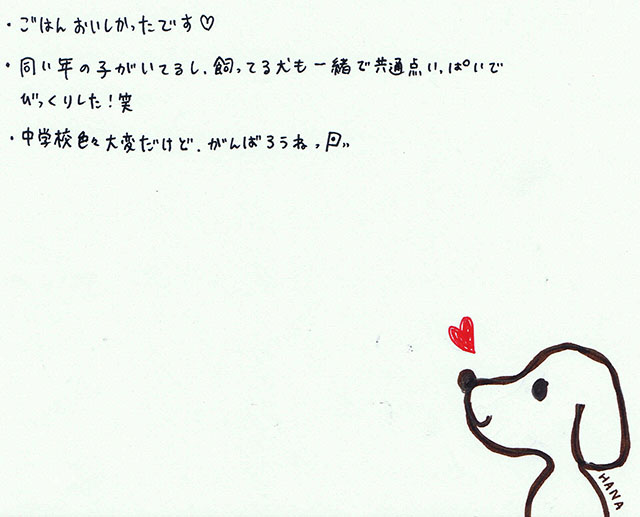 ・ごはんおいしかったです♡
・同い年の子がいてるし、飼ってる犬も一緒で共通点いっぱいで
びっくりした！笑
・中学校色々大変だけど、がんばろうね
HANA